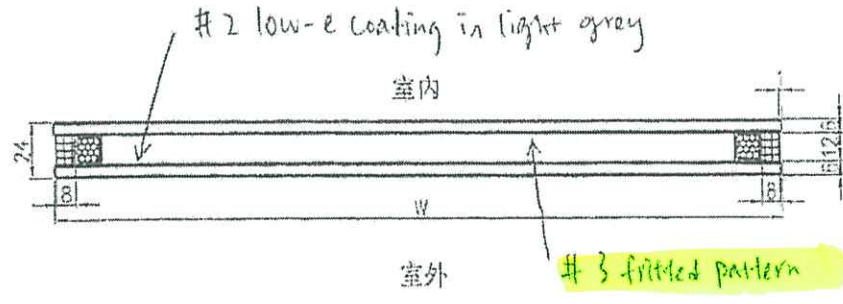 #2 low-e coating in light grey
室内
24
6
12
6
8
8
W
室外
#3 fritted pattern